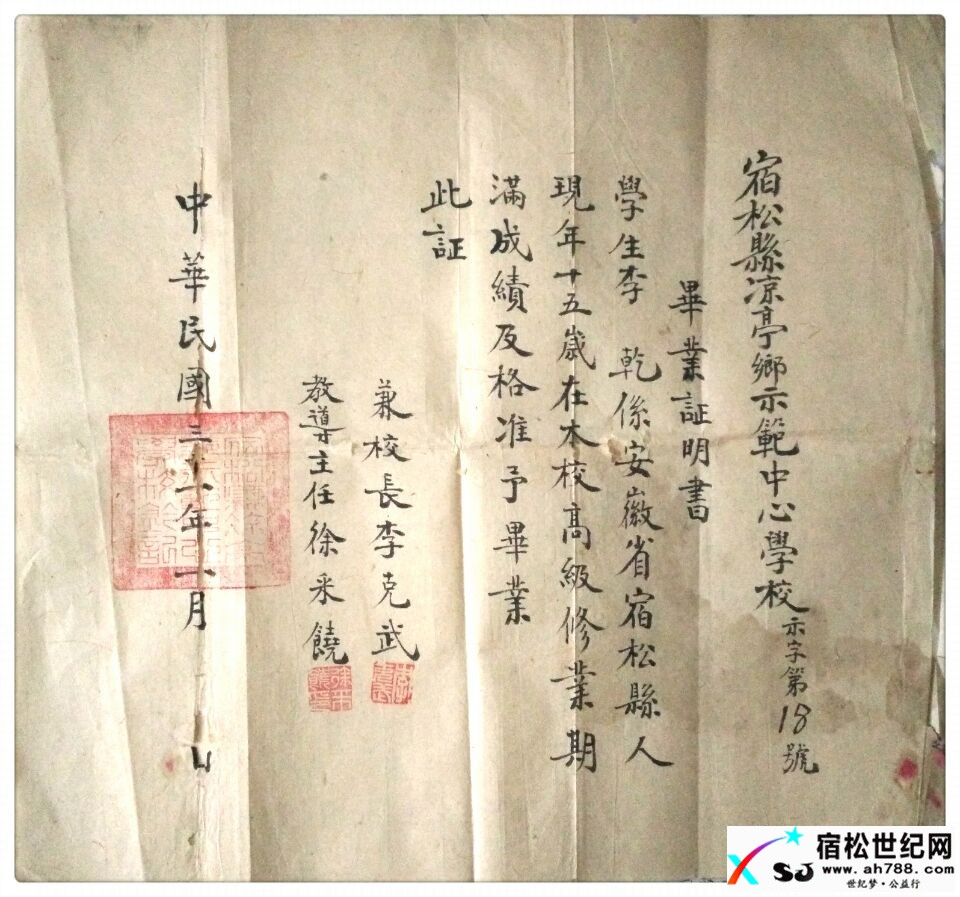 宿松縣凉亭鄉示範中心學校示字第18號
畢業証明書
學生李 乾係安徽省宿松縣人
現年十五歲在本校高級修業期
滿成績及格准予畢業
此証
兼校長李克武
教導主任徐采饒
中華民國三十一年一月 日
宿松世纪网
www.ah788.com
世纪梦·公益行
SJ